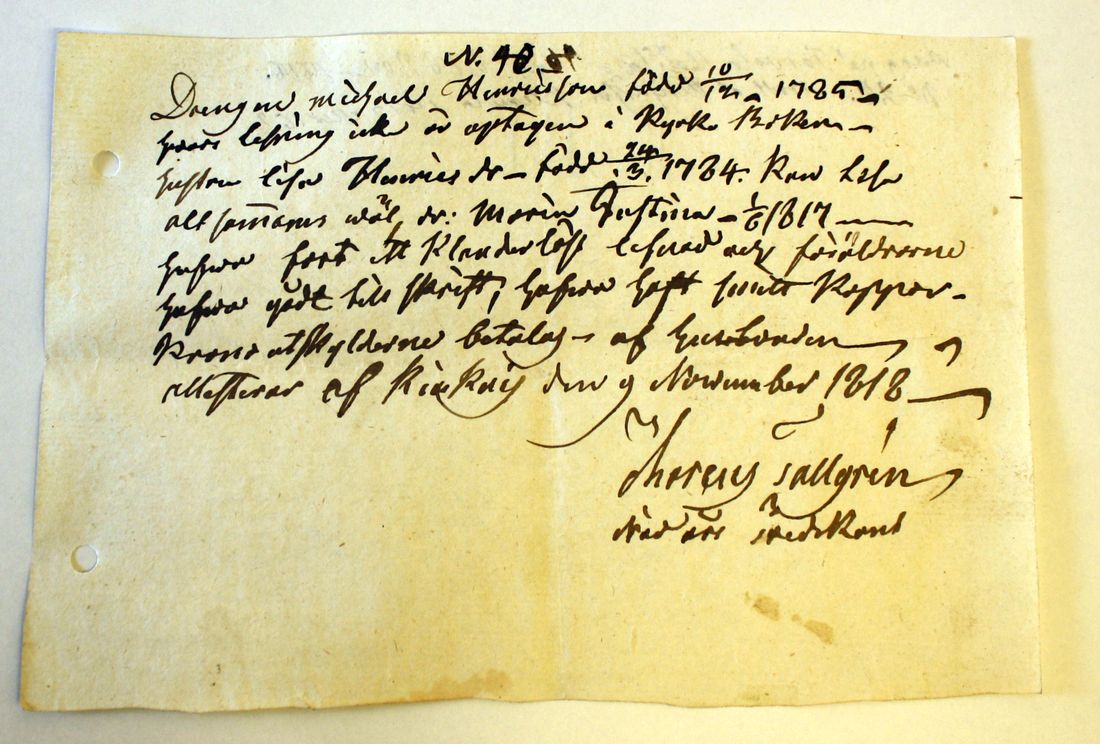 N. 42
Drengen Michael Henricsson född 10/12 1785
hvars läsning icke är optagen i Kyrko Boken
hustru Lisa Henrics dr. född 24/3. 1784. Kan läsa
altsammans wäl, dr: Maria Justina 1/6 1817
hafwa fört ett Klanderlöst lefnad och föräldrarne
hafwa gådt till skrift, hafwa haft smitt Koppor
Krono utskylderne betalas af husbonden
Attesterar af Kiukais den 9 November 1818
Thorenus Tallgrén
Nåd års Predikant